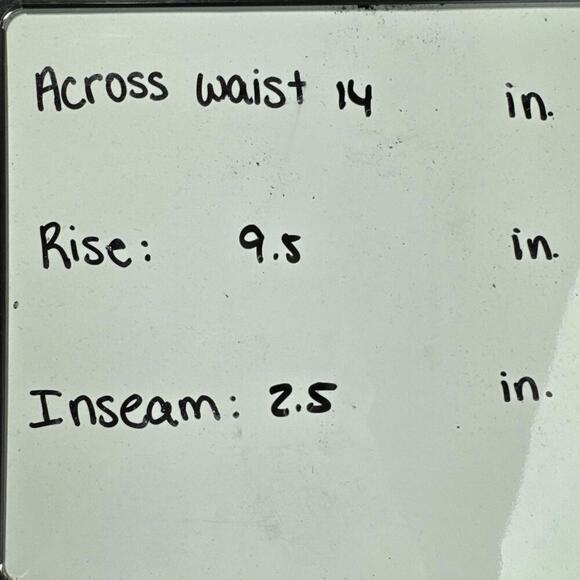 Across waist 14 in.
Rise: 9.5 in.
Inseam: 2.5 in.